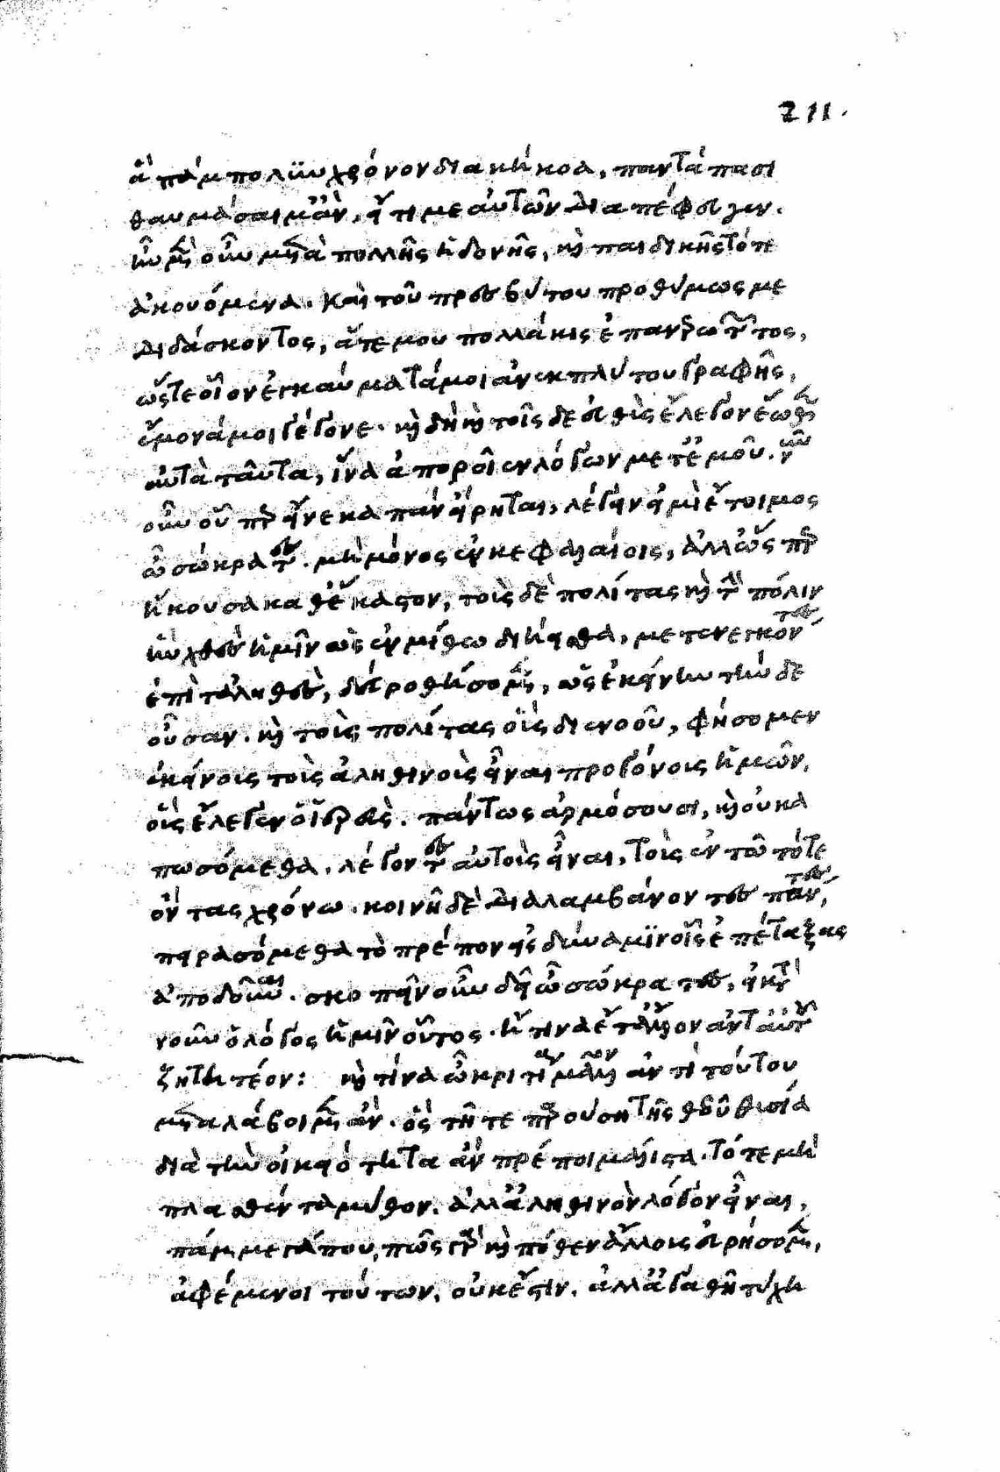 211.
ἃ πάμπολυν χρόνον διακήκοα, παντάπασι
θαυμάσαιμ' ἂν, εἴ τι με αὐτῶν διαπέφευγεν.
ἦν μὲν οὖν μετὰ πολλῆς ἡδονῆς, καὶ παιδικῆς τότε
ἀκουόμενα. καὶ τοῦ πρεσβύτου προθύμως με
διδάσκοντος, ἅτε μου πολλάκις ἐπανερωτῶντος,
ὥστε οἷον ἐγκαύματά μοι ἀνεκπλύτου γραφῆς,
ἔμονά μοι γέγονε. καὶ δὴ καὶ τοῖς δε εὐθὺς ἔλεγον ἕωθεν
αὐτὰ ταῦτα, ἵνα εὐποροῖεν λόγων μετ' ἐμοῦ. νῦν
οὖν οὗπερ ἕνεκα πάντ' εἴρηται, λέγειν εἰμὶ ἕτοιμος
ὦ σώκρατες. μὴ μόνον ἐν κεφαλαίοις, ἀλλ' ὥσπερ
ἤκουσα καθ' ἕκαστον, τοὺς δὲ πολίτας καὶ τὴν πόλιν
ἣν χθὲς ἡμῖν ὡς ἐν μύθῳ διῄεισθα, μετενεγκόντες
ἐπὶ τἀληθὲς, δεῦρο θήσομεν, ὡς ἐκείνην τήνδε
οὖσαν. καὶ τοὺς πολίτας οὓς διενοοῦ, φήσομεν
ἐκείνους τοὺς ἀληθινοὺς εἶναι προγόνους ἡμῶν,
οὓς ἔλεγεν ὁ ἱερεὺς. πάντως ἁρμόσουσι, καὶ οὐκ ἀ
πᾳσόμεθα, λέγοντες αὐτοὺς εἶναι, τοὺς ἐν τῷ τότε
ὄντας χρόνῳ. κοινῇ δὲ διαλαμβάνοντες πάντες,
πειρασόμεθα τὸ πρέπον εἰς δύναμιν οἷς ἐπέταξας
ἀποδοῦναι. σκοπεῖν οὖν δεῖ ὦ σώκρατες, εἰ κατὰ
νοῦν ὁ λόγος ἡμῖν οὗτος. ἤ τινα ἔτ' ἄλλον ἀντ' αὐτοῦ
ζητητέον: καὶ τίνα ὦ κριτία μᾶλλον ἀντὶ τούτου
μεταλάβοιμεν ἂν. ὃς τῇ τε παρούσῃ τῆς θεοῦ θυσίᾳ
διὰ τὴν οἰκειότητα ἂν πρέποι μάλιστα. τότε μὴ
πλασθέντα μῦθον. ἀλλ' ἀληθινὸν λόγον εἶναι,
πάμμεγά που, πῶς γὰρ καὶ πόθεν ἄλλους εὑρήσομεν,
ἀφέμενοι τούτων. οὐκ ἔστιν. ἀλλ' ἀγαθῇ τύχῃ